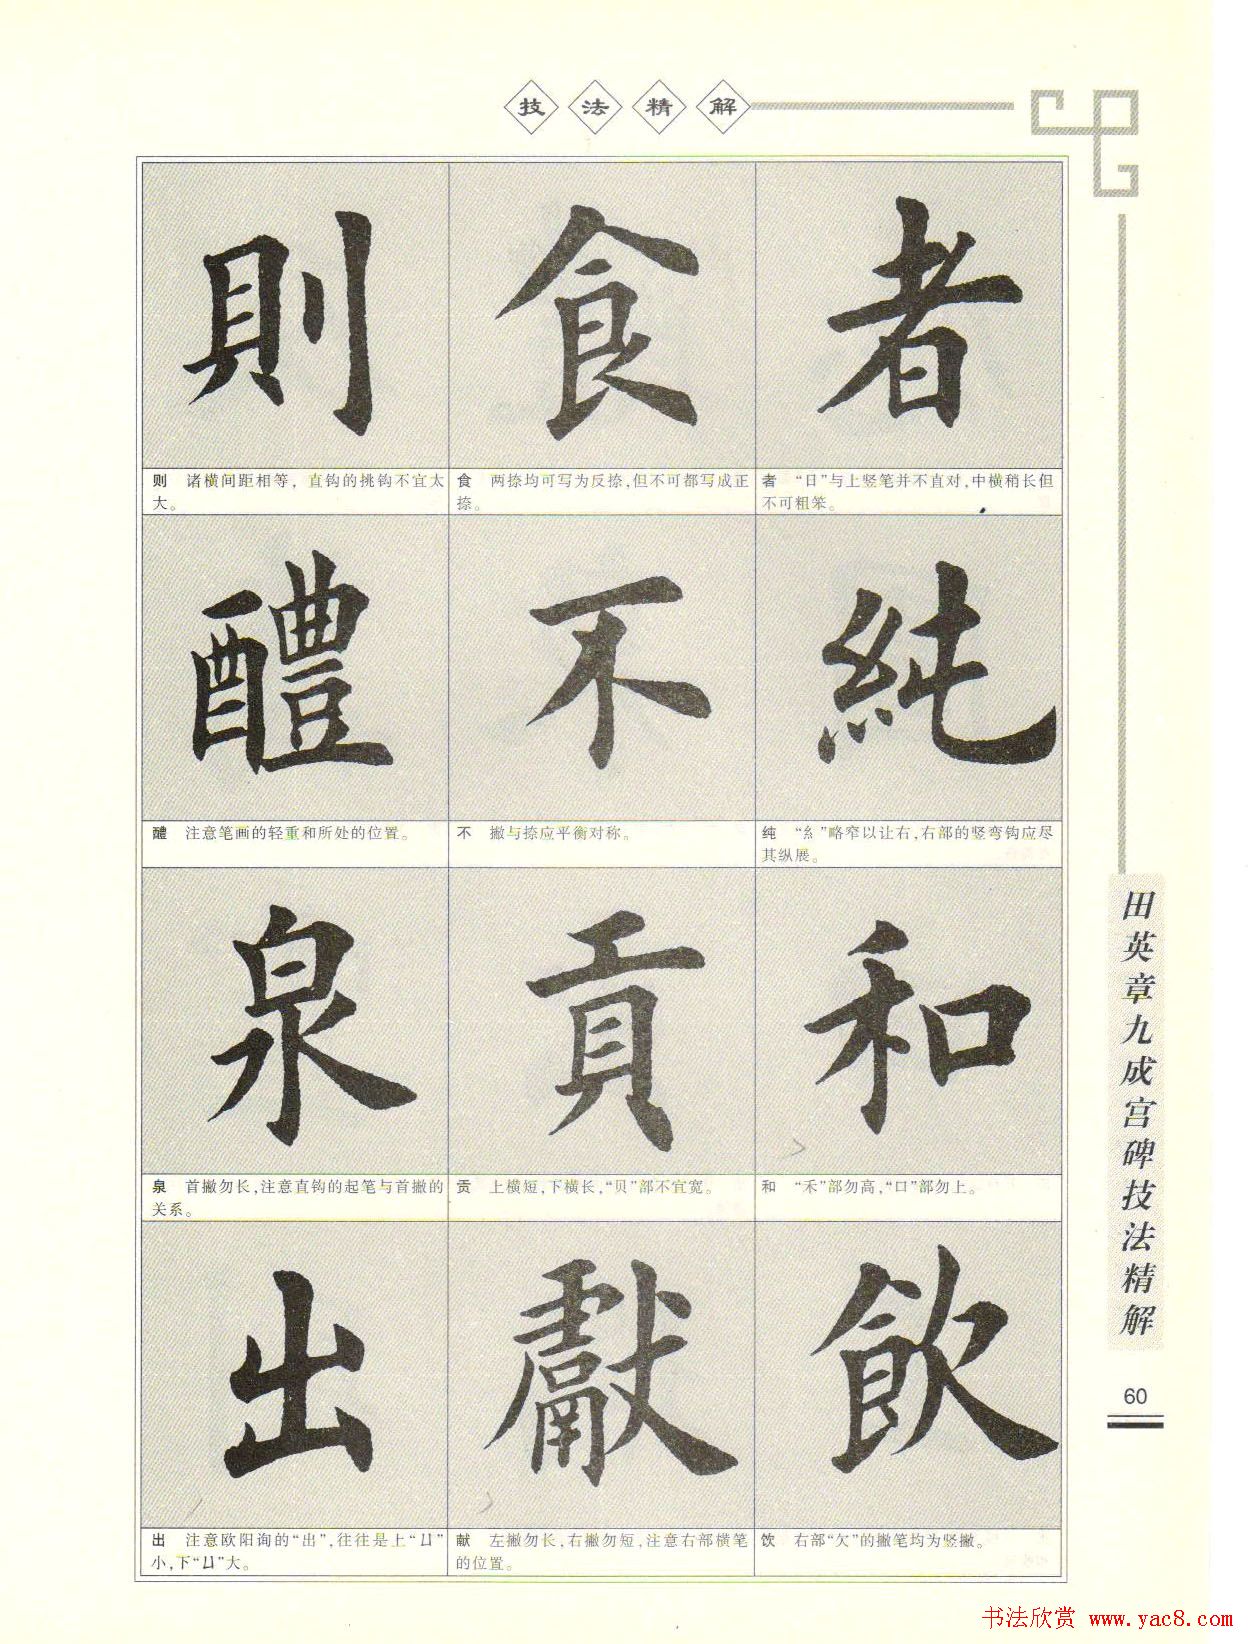 技法精解
則 食 者
则 诸横间距相等，直钩的挑钩不宜太
大。
食 两捺均可写为反捺，但不可都写成正
捺。
者 “日”与上竖笔并不直对，中横稍长但
不可粗笨。
醴 不 純
醴 注意笔画的轻重和所处的位置。
不 撇与捺应平衡对称。
纯 “糹”略窄以让右，右部的竖弯钩应尽
其纵展。
泉 貢 和
泉 首撇勿长，注意直钩的起笔与首撇的
关系。
贡 上横短，下横长，“贝”部不宜宽。
和 “禾”部勿高，“口”部勿上。
出 獻 飲
出 注意欧阳询的“出”，往往是上“凵”
小，下“凵”大。
献 左撇勿长，右撇勿短，注意右部横笔
的位置。
饮 右部“欠”的撇笔均为竖撇。
田英章九成宫碑技法精解
60
书法欣赏 www.yac8.com